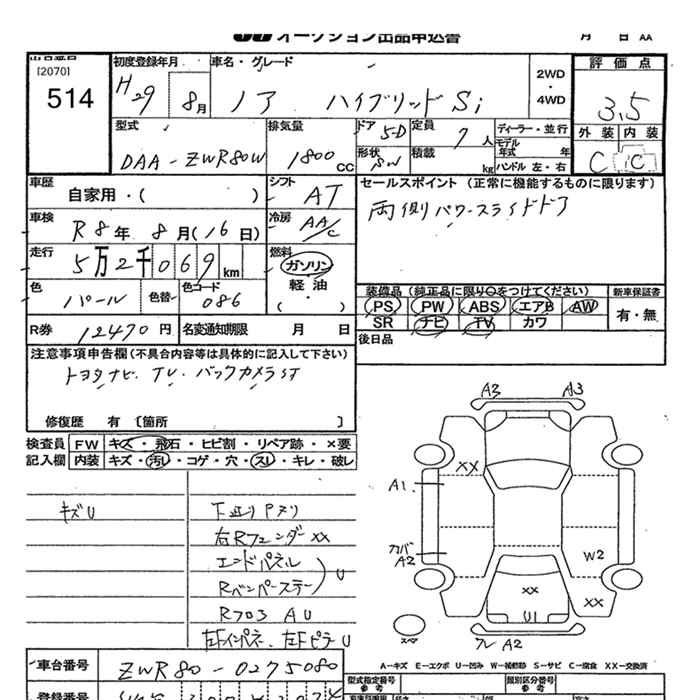 JU オークション出品申込書 月 日 AA
出品番号 初度登録年月 車名・グレード 評価点
[2070] 514 H29 8月 ノア ハイブリッド Si 2WD・4WD 3.5
型式 排気量 ドア 5D 定員 7人 ディーラー・並行 外装 内装
DAA-ZWR80W 1800CC 形状 SW 積載 kg モデル年式 年 ハンドル 左・右 C C
車歴 自家用・( ) シフト AT セールスポイント (正常に機能するものに限ります)
車検 R8年 8月(16日) 冷房 AA/C 両側パワースライドドア
走行 5万2千069km 燃料 ガソリン・軽油・( )
色 パール 色替 色コード 086 装備品 (純正品に限り○をつけてください) 新車保証書
PS PW ABS エアB AW 有・無
R券 12470円 名変通知期限 月 日 SR ナビ TV カワ
注意事項申告欄(不具合内容等は具体的に記入して下さい) 後日品
トヨタナビ TV バックカメラ ST
修復歴 有 〔箇所 〕
検査員 FW キズ・飛石・ヒビ割・リペア跡・×要
記入欄 内装 キズ・汚レ・コゲ・穴・スレ・キレ・破レ
A3 A3
XX
A1
カバー A2
W2
XX XX
U1
スペア A2
キズU 下廻りPヌリ
右Rフェンダー XX
エンドパネル
U
A U
U
A-キズ E-エクボ U-凹み W-補修跡 S-サビ C-腐食 XX-交換済
車台番号 ZWR80-0275080 型式指定番号 参考 類別区分番号 参考
登録番号